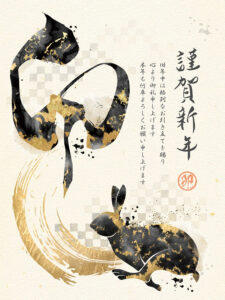 卯
謹賀新年
旧年中は格別なお引き立てを賜り
心より御礼申し上げます
本年も何卒よろしくお願い申し上げます
卯